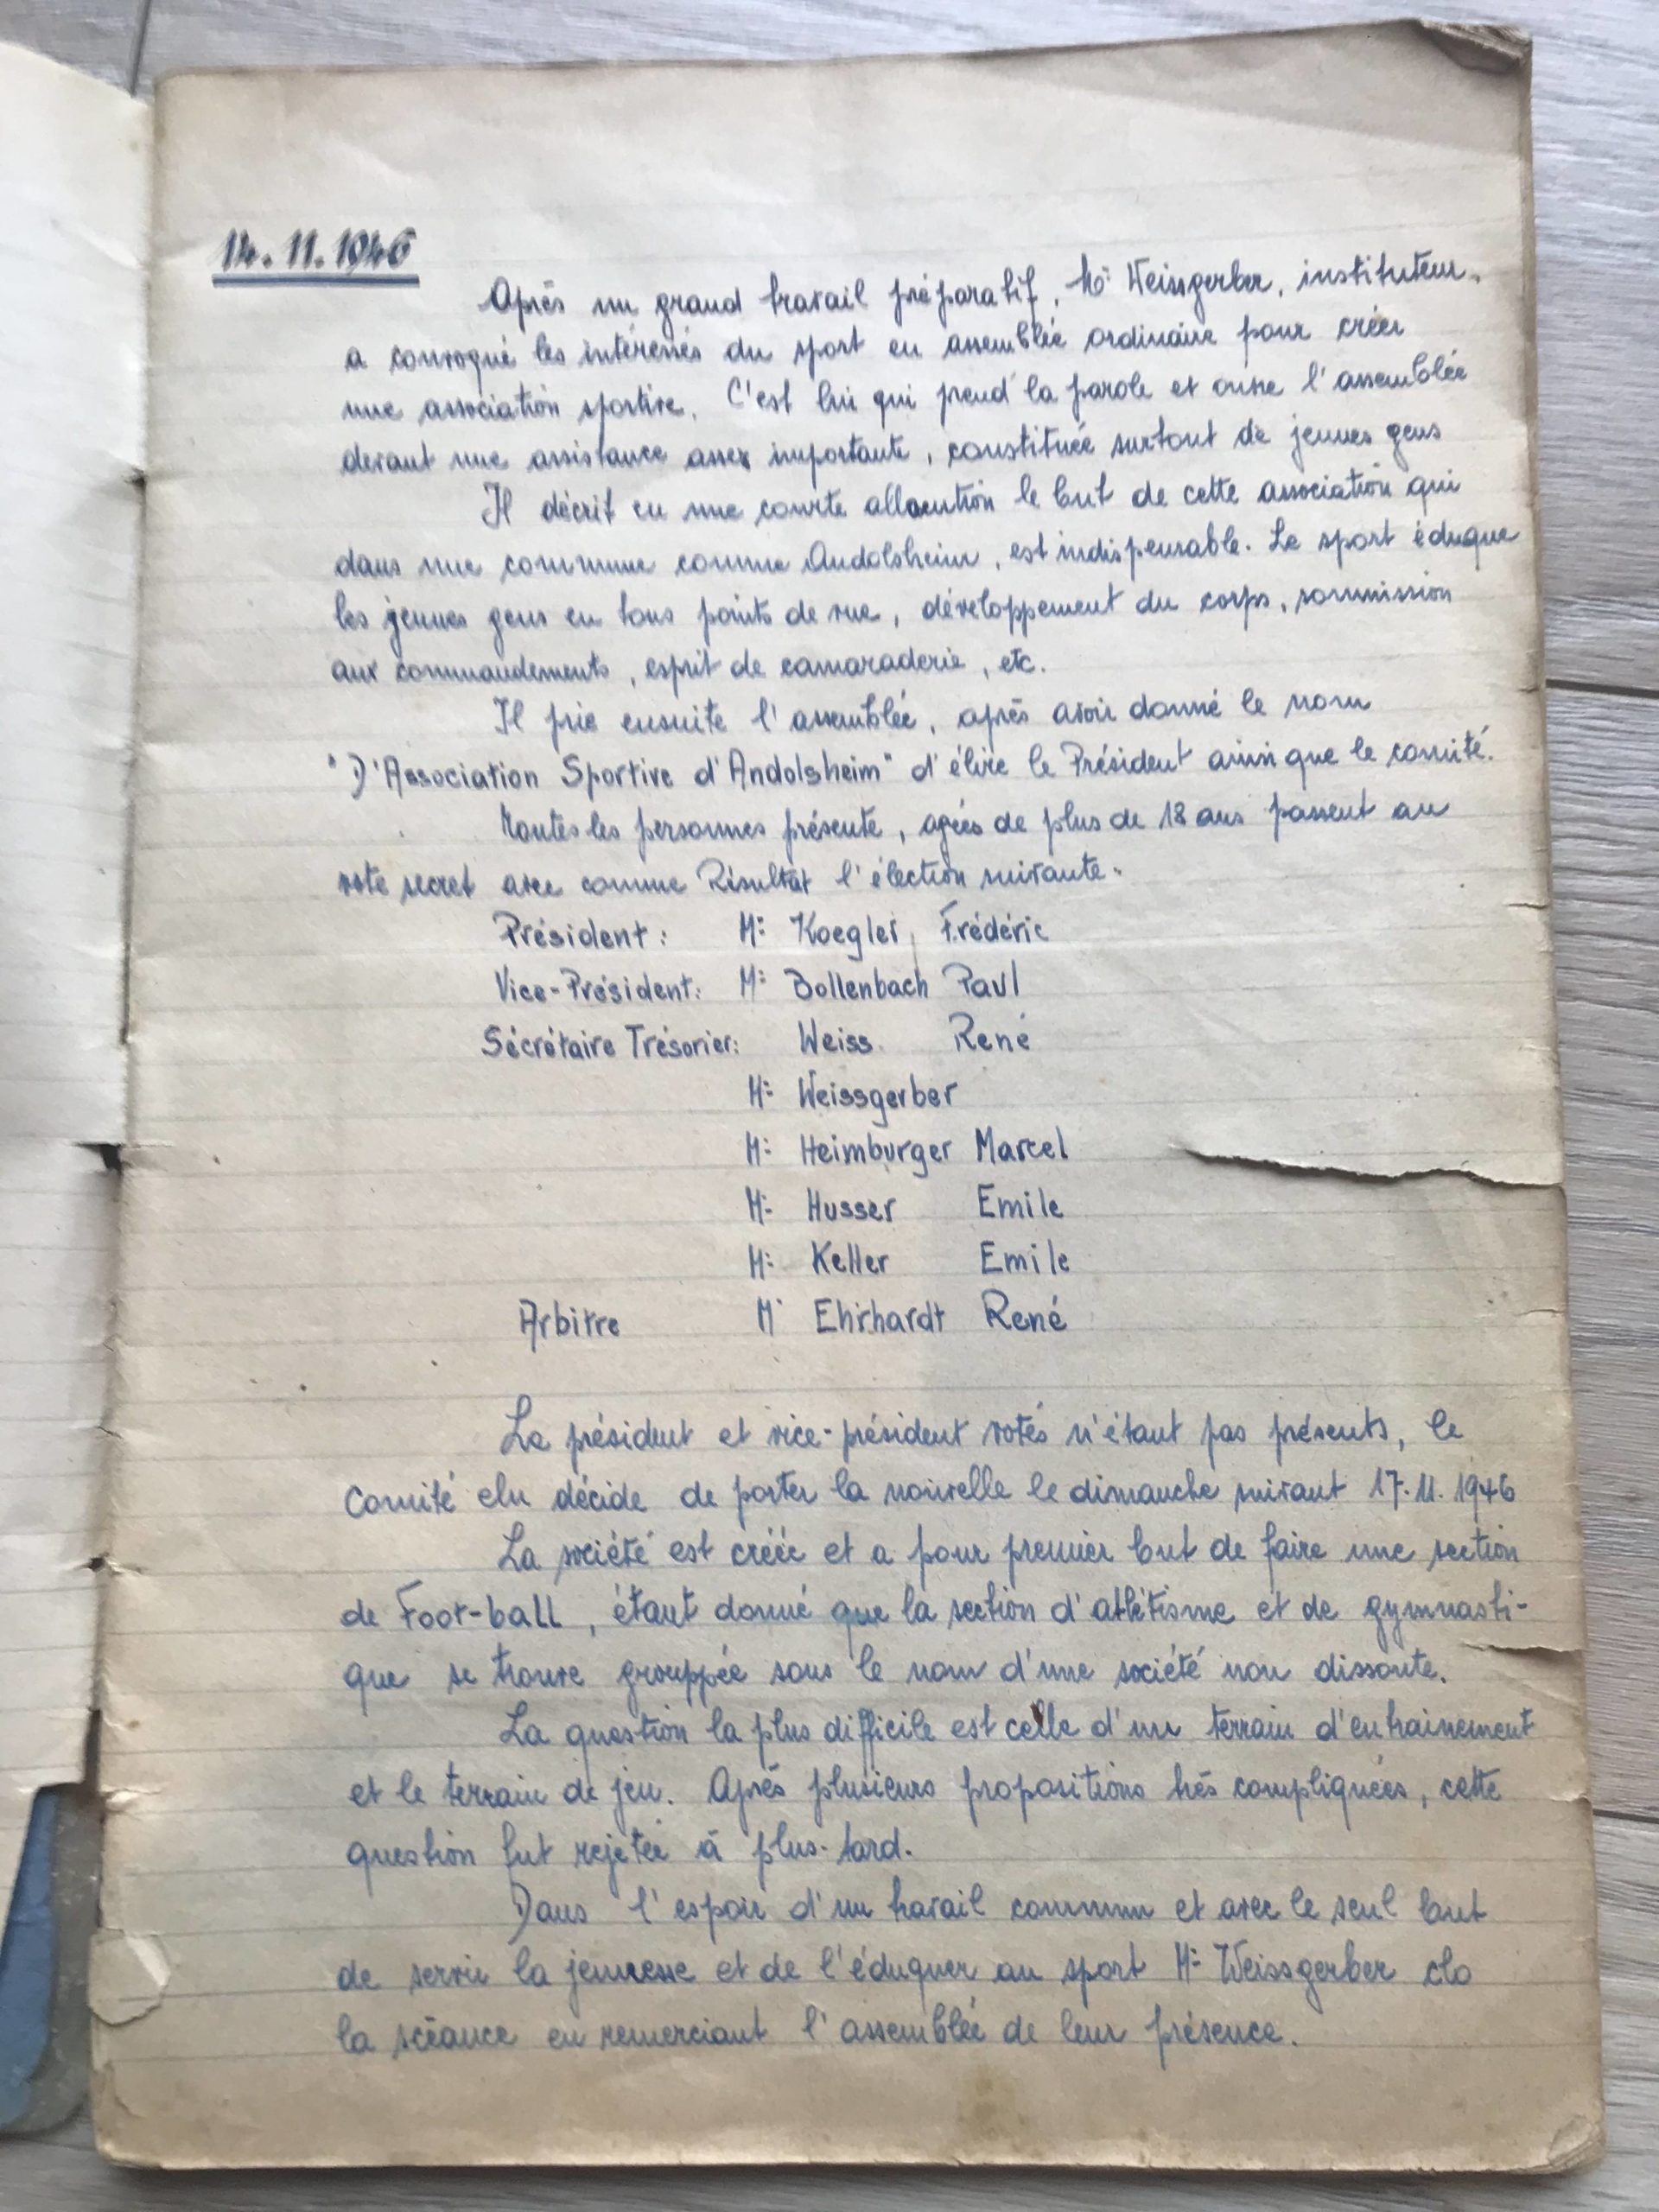 14.11.1946
Après un grand travail préparatif, Mr Weissgerber, instituteur,
a convoqué les intéressés du sport en assemblée ordinaire pour créer
une association sportive. C'est lui qui prend la parole et ouvre l'assemblée
devant une assistance assez importante, constituée surtout de jeunes gens
Il décrit en une courte allocution le but de cette association qui
dans une commune comme Andolsheim, est indispensable. Le sport éduque
les jeunes gens en tous points de vue, développement du corps, soumission
aux commandements, esprit de camaraderie, etc.
Il prie ensuite l'assemblée, après avoir donné le nom
"D'Association Sportive d'Andolsheim" d'élire le Président ainsi que le comité.
Toutes les personnes présente, agées de plus de 18 ans passent au
vote secret avec comme Résultat l'élection suivante:
Président: Mr Koegler Frédéric
Vice-Président: Mr Bollenbach Paul
Sécrétaire Trésorier: Weiss René
Mr Weissgerber
Mr Heimburger Marcel
Mr Husser Emile
Mr Keller Emile
Arbitre Mr Ehrhardt René
Le président et vice-président votés n'étant pas présents, le
Comité elu décide de porter la nouvelle le dimanche suivant 17.11.1946
La société est créée et a pour premier but de faire une section
de Foot-ball, étant donné que la section d'atlétisme et de gymnasti-
que se trouve grouppée sous le nom d'une société non dissoute.
La question la plus difficile est celle d'un terrain d'entrainement
et le terrain de jeu. Après plusieurs propositions très compliquées, cette
question fut rejetée à plus-tard.
Dans l'espoir d'un travail commun et avec le seul but
de servir la jeunesse et de l'éduquer au sport Mr Weissgerber clo
la scéance en remerciant l'assemblée de leur présence.